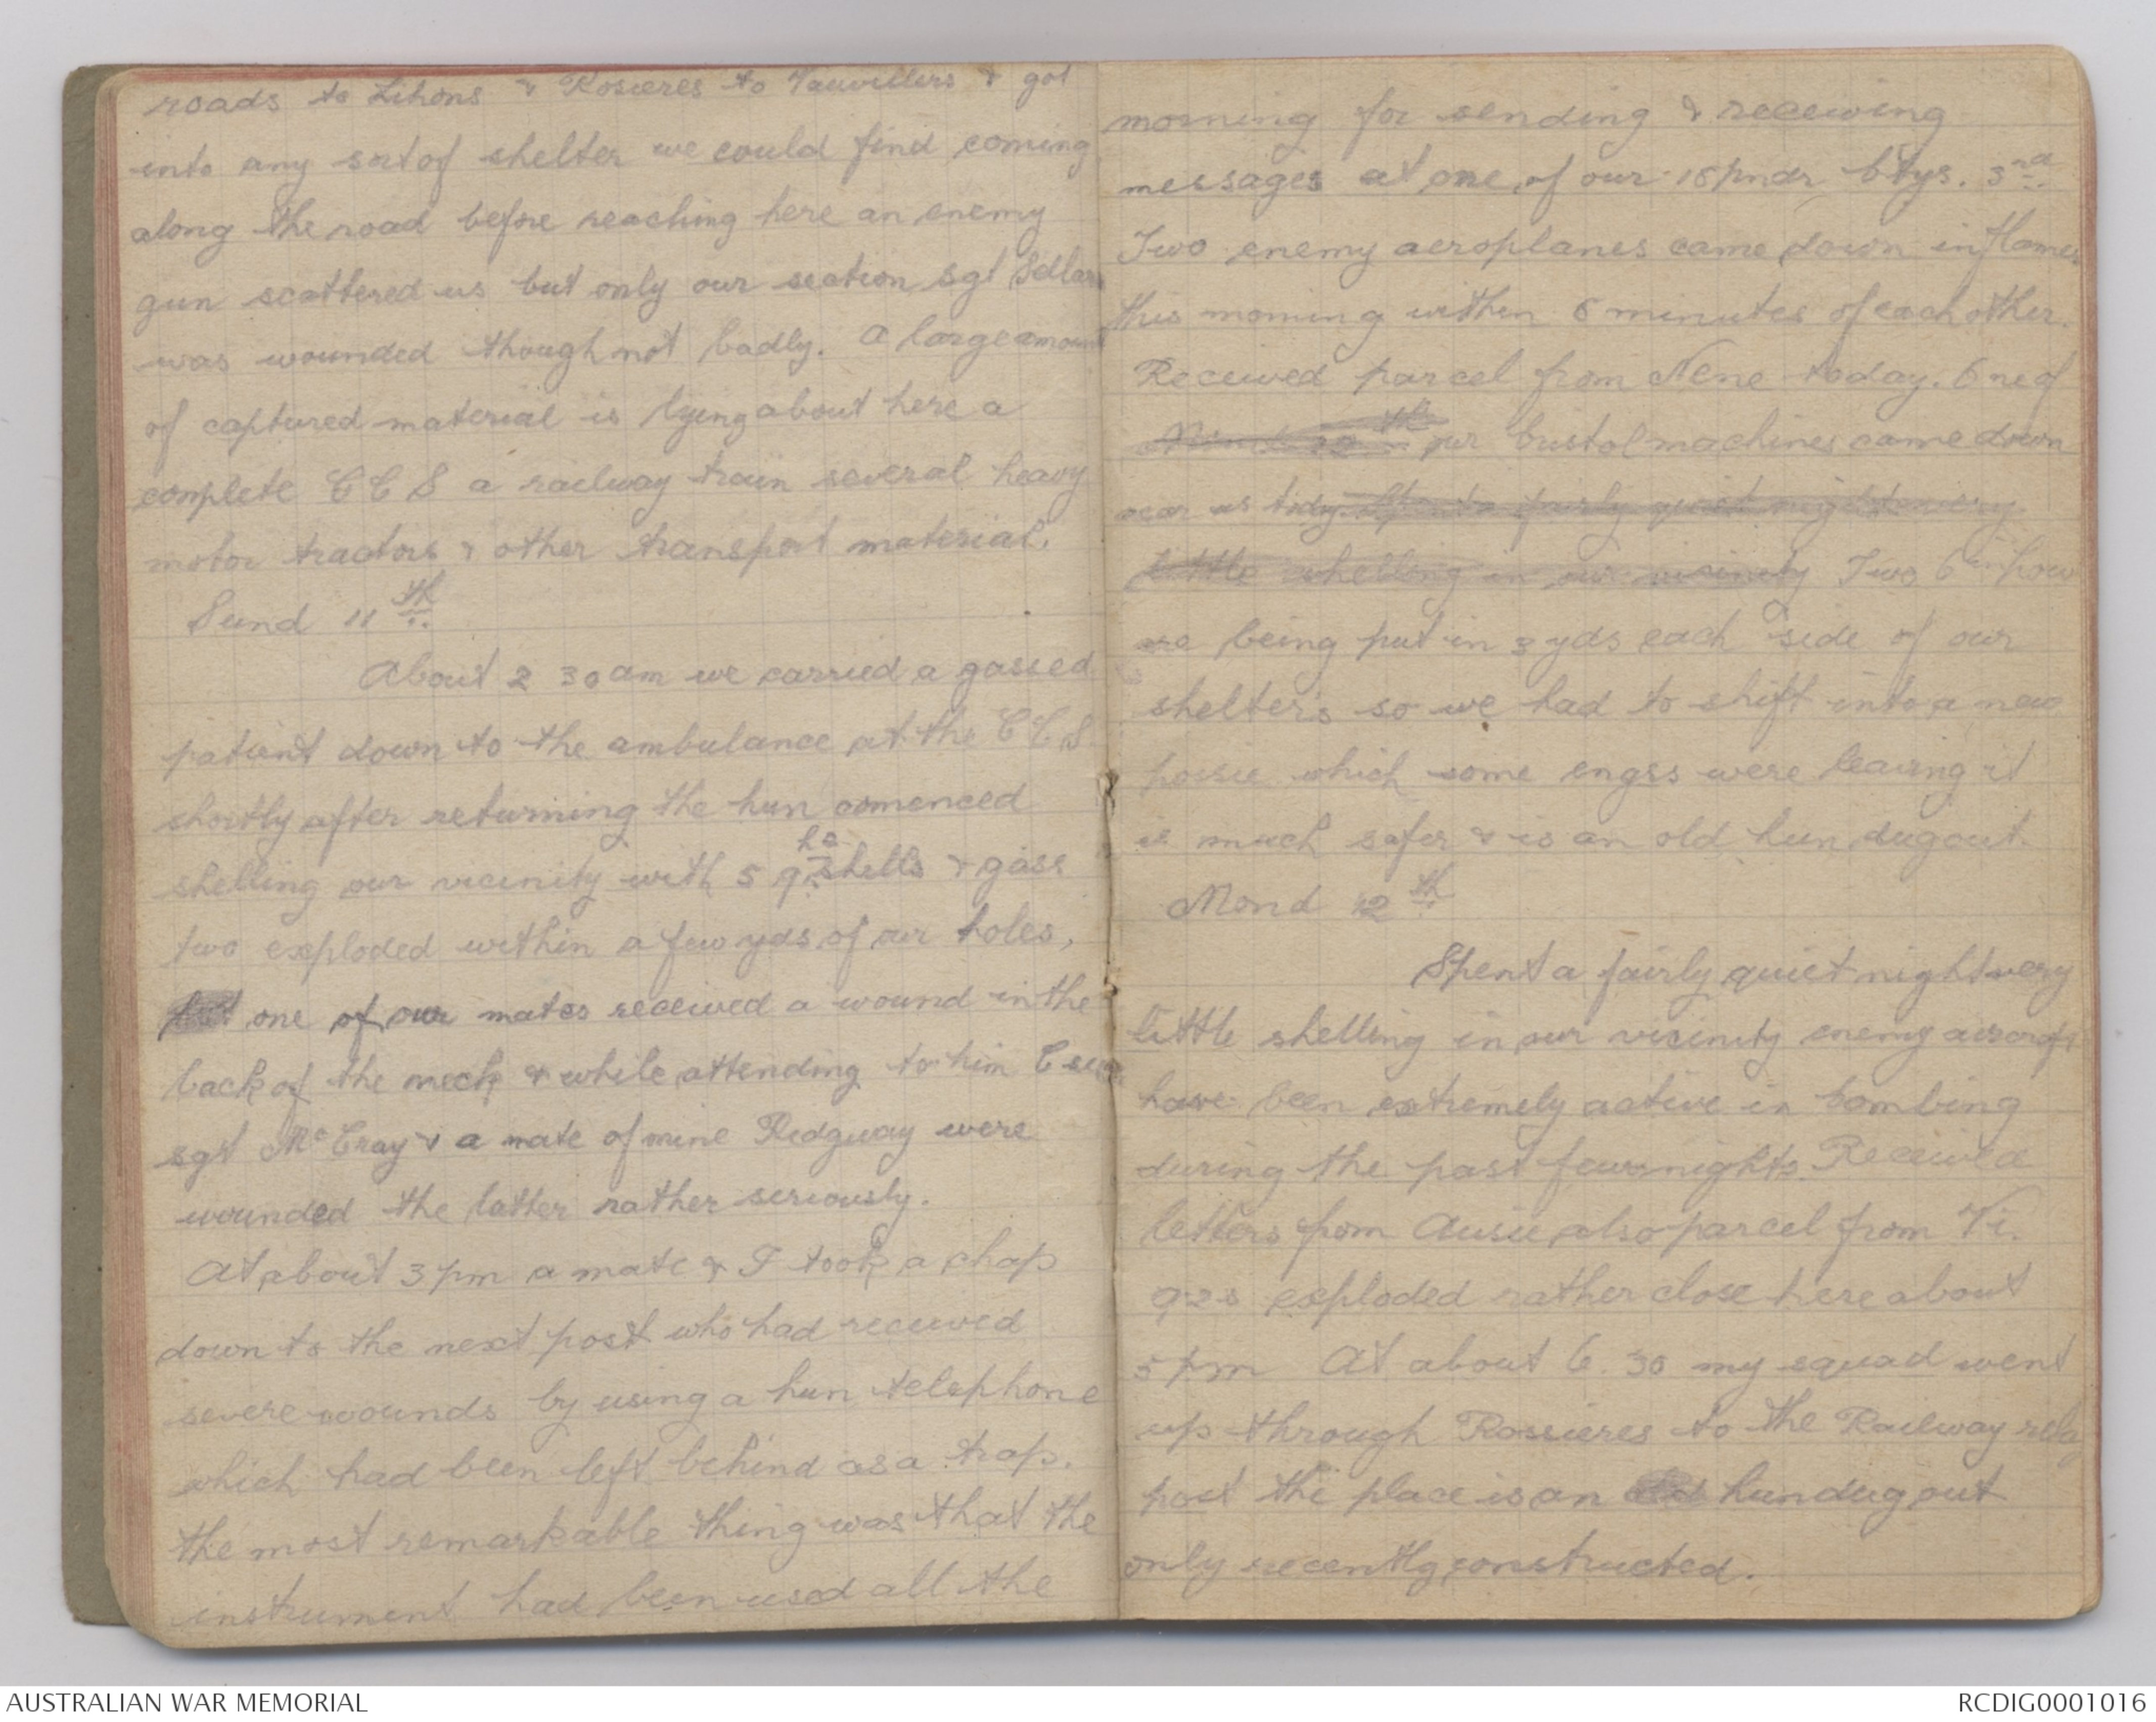 roads to Lihons & Rosieres to Vauvillers & got
into any sort of shelter we could find coming
along the road before reaching here an enemy
gun scattered us but only our section sgt
was wounded though not badly. A large amount
of captured material is lying about here a
complete C C S a railway train several heavy
motor tractors & other transport material.
Sund 11th
About 2 30 am we carried a gassed
patient down to the ambulance at the C C S
shortly after returning the hun comenced
shelling our vicinity with 5 9 he shells & gass
two exploded within a few yds of our holes,
one of our mates received a wound in the
back of the neck & while attending to him
sgt McCray & a mate of mine Ridgway were
wounded the latter rather seriously.
At about 3 pm a mate & I took a chap
down to the next post who had received
severe wounds by using a hun telephone
which had been left behind as a trap.
the most remarkable thing was that the
instrument had been used all the
morning for sending & receiving
messages at one of our 18 pndr btys. 3rd
Two enemy aeroplanes came down in flames
this morning within 5 minutes of each other.
Received parcel from Nene today. One of
our bristol machines came down
near us tody. fairly quiet night very
little shelling in our vicinity Two 6 in how
are being put in 3 yds each side of our
shelters so we had to shift into a new
possie which some engrs were leaving it
is much safer & is an old hun dugout.
Mond 12th
Spent a fairly quiet night very
little shelling in our vicinity enemy aircraft
have been extremely active in bombing
during the past few nights. Received
letters from Ausie also parcel from Vi.
9.2s exploded rather close here about
5 pm At about 6. 30 my squad went
up through Rossieres to the Railway relay
post the place is an hun dug out
only recently constructed.
AUSTRALIAN WAR MEMORIAL
RCDIG0001016